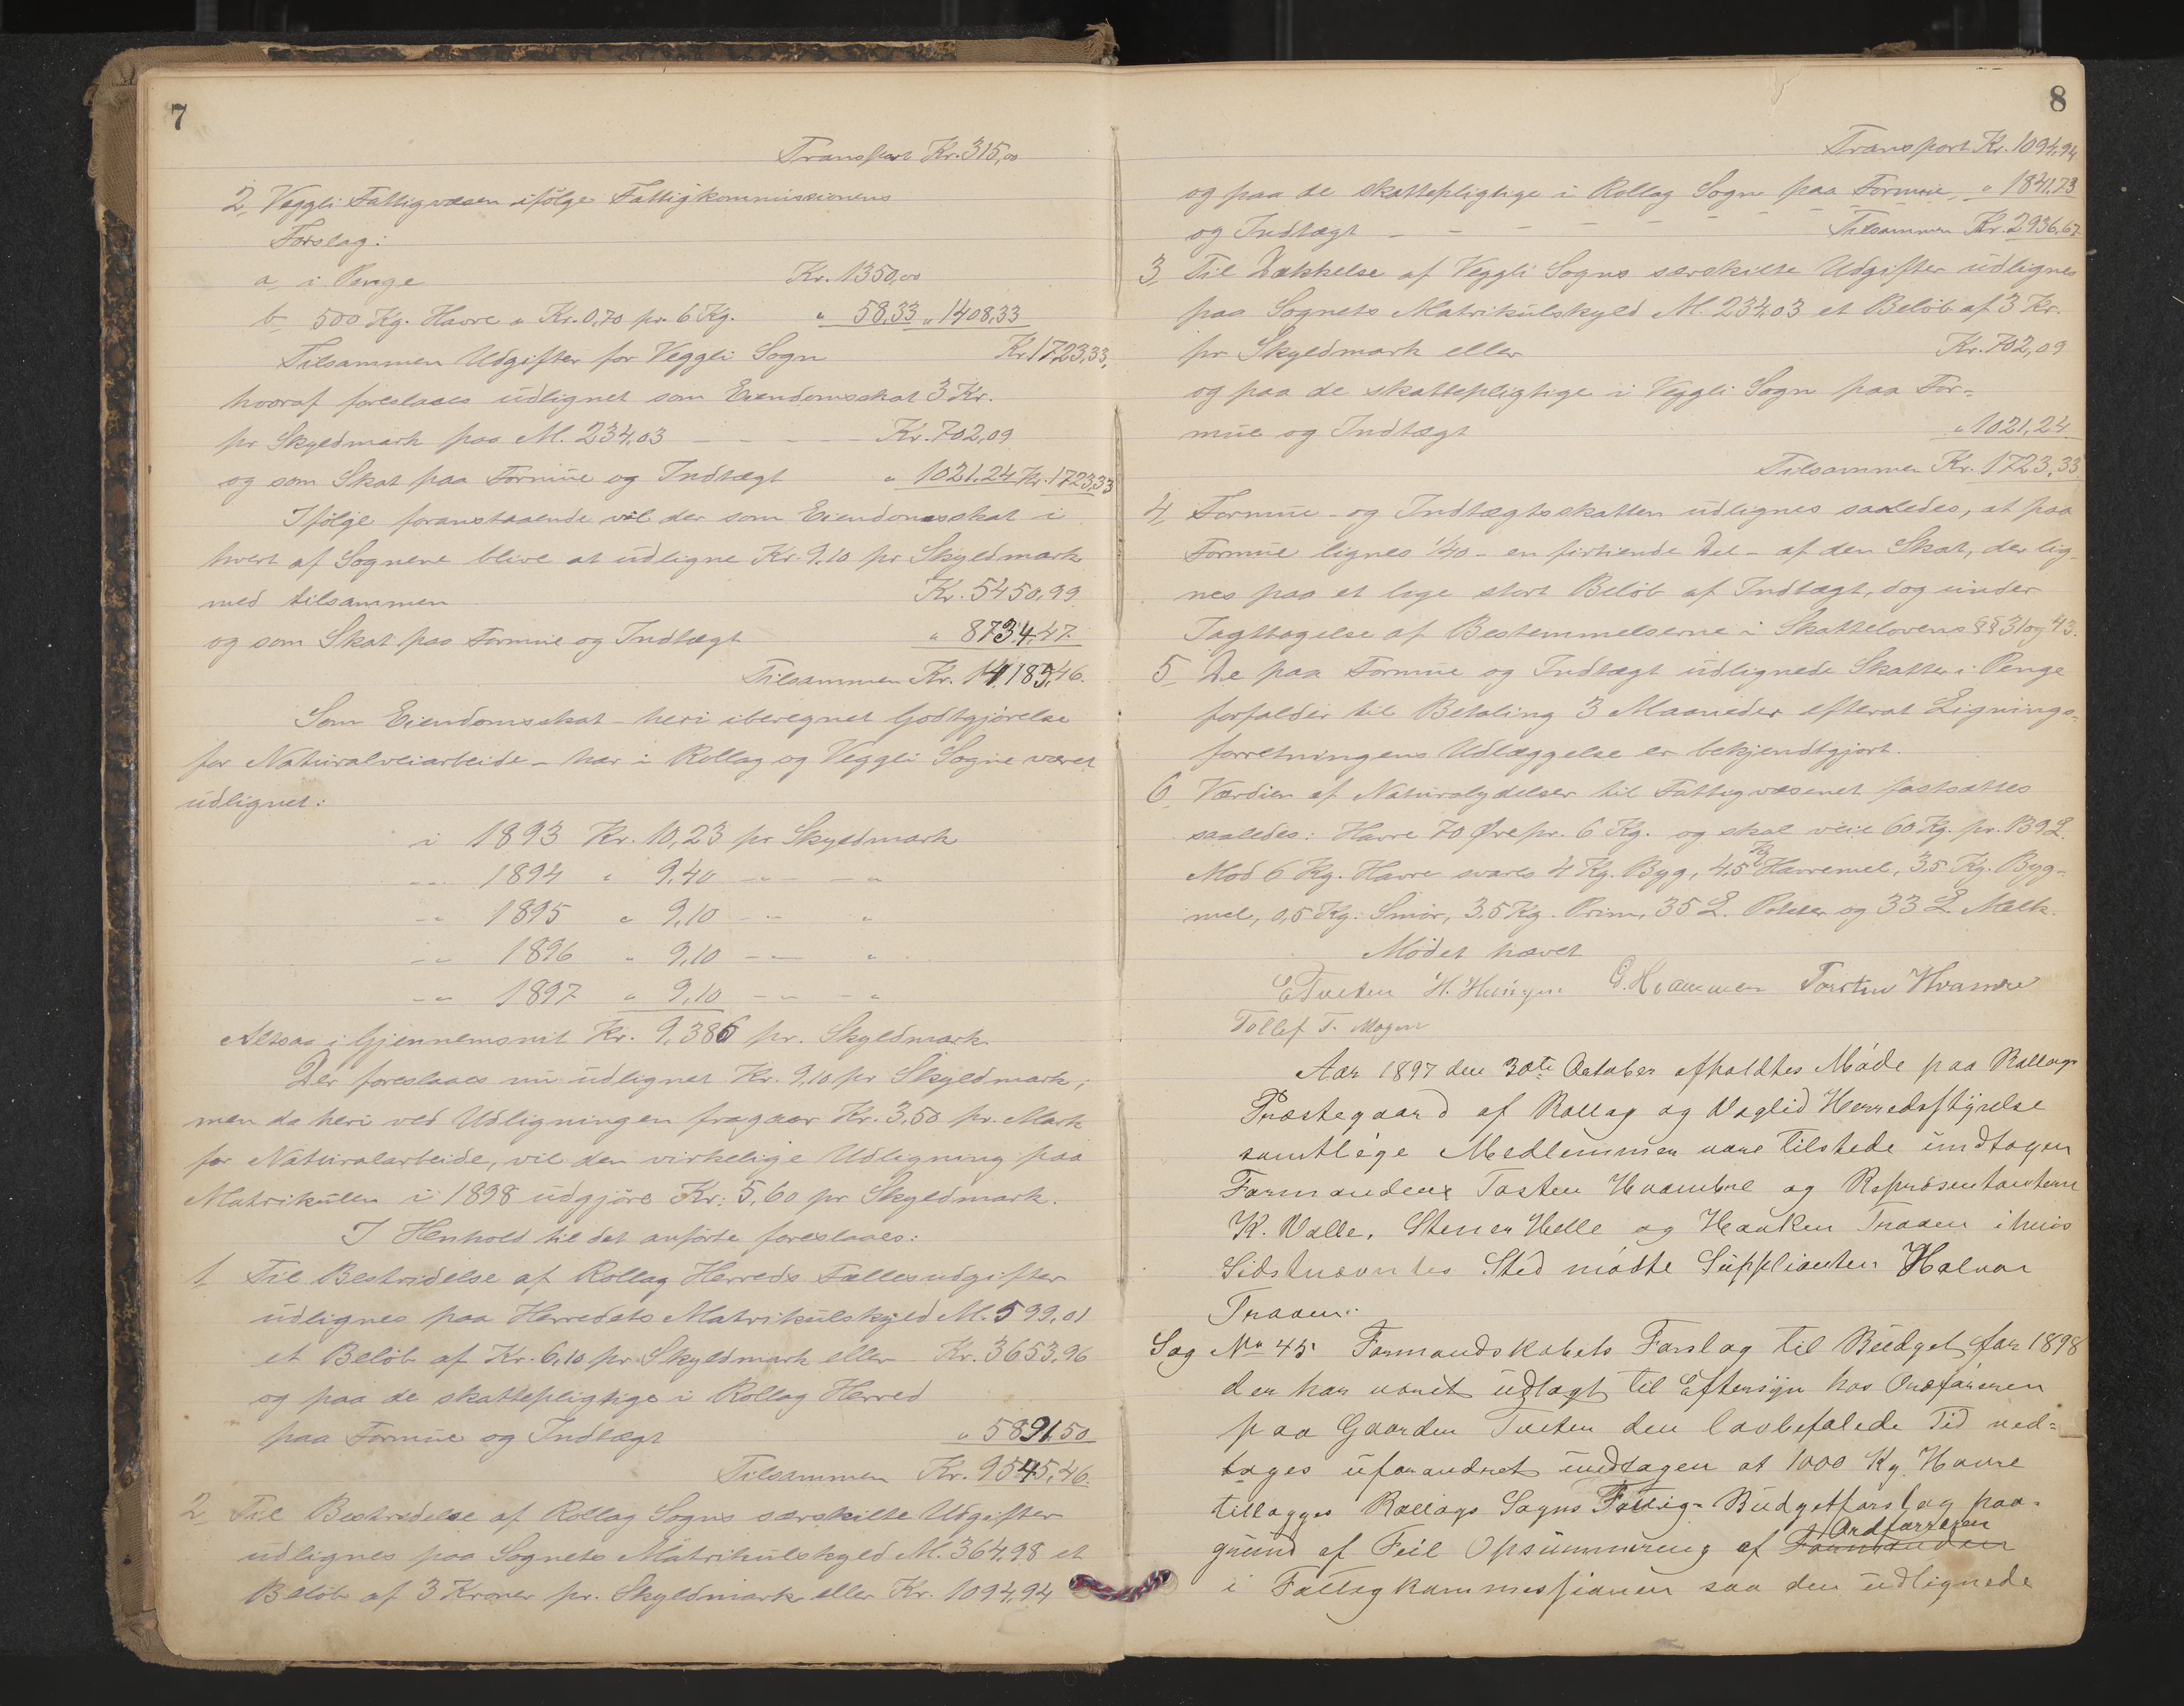 7
Transport Kr. 315,00
2, Veggli Fattigvæsen ifølge Fattigkommissionens
Forslag:
a, i Penge Kr. 1350,00
b, 500 Kg. Havre a Kr. 0,70 pr. 6 Kg. " 58,33 " 1408,33
Tilsammen Udgifter for Veggli Sogn Kr 1723,33,
hvoraf foreslaaes udlignet som Eiendomsskat 3 Kr.
pr Skyldmark paa M. 234,03 - - - - Kr. 702,09
og som Skat paa Formue og Indtægt " 1021,24 Kr. 1723,33
Ifølge foranstaaende vil der som Eiendomsskat i
hvert af Sognene blive at udligne Kr. 9,10 pr Skyldmark
med tilsammen Kr. 5450,99
og som Skat paa Formue og Indtægt " 8734,47.
Tilsammen Kr. 14185,46.
Som Eiendomsskat - heri iberegnet Godtgjørelse
for Naturalveiarbeide - har i Rollag og Veggli Sogne været
udlignet:
i 1893 Kr. 10,23 pr Skyldmark
-"- 1894 " 9,40 -"- -"
-"- 1895 " 9,10 -"- "
-"- 1896 " 9,10 -"- "
-"- 1897 " 9,10 -"- -"
Altsaa i Gjennemsnit Kr. 9,386 pr. Skyldmark.
Der foreslaaes nu udlignet Kr. 9,10 pr Skyldmark,
men da heri ved Udligningen fragaar Kr. 3,50 pr. Mark
for Naturalarbeide, vil den virkelige Udligning paa
Matrikulen i 1898 udgjøre Kr. 5,60 pr Skyldmark.
I Henhold til det anførte foreslaaes:
1, Til Bestridelse af Rollag Herreds Fællesudgifter
udlignes paa Herredets Matrikulskyld M. 599,01
et Beløb af Kr. 6,10 pr. Skyldmark eller Kr. 3653,96
og paa de skattepligtige i Rollag Herred
paa Formue og Indtægt " 5891,50
Tilsammen Kr. 9545,46.
2, Til Bestridelse af Rollag Sogns særskilte Udgifter
udlignes paa Sognets Matrikulskyld M. 364,98 et
Beløb af 3 Kroner pr. Skyldmark eller Kr. 1094,94
8
Transport Kr. 1094,94
og paa de skattepligtige i Rollag Sogn paa Formue, " 1841,73
og Indtægt - - - - Tilsammen Kr. 2936,67
3, Til Dækkelse af Veggli Sogns særskilte Udgifter udlignes
paa Sognets Matrikulskyld M. 234,03 et Beløb af 3 Kr.
pr Skyldmark eller Kr. 702,09
og paa de skattepligtige i Veggli Sogn paa For=
mue og Indtægt " 1021,24
Tilsammen Kr. 1723,33
4, Formue- og Indtægtsskatten udlignes saaledes, at paa
Formue lignes 1/40 - en firtiende Del - af den Skat, der lig-
nes paa et lige stort Beløb af Indtægt, dog under
Iagttagelse af Bestemmelserne i Skattelovens §§ 31 og 43.
5, De paa Formue og Indtægt udlignede Skatter i Penge
forfalder til Betaling 3 Maaneder efterat Lignings=
forretningens Udlæggelse er bekjendtgjort.
6, Værdien af Naturalydelser til Fattigvæsenet fastsættes
saaledes: Havre 70 Øre pr. 6 Kg. og skal veie 60 Kg. pr. 139 L.
Mod 6 Kg. Havre svares 4 Kg. Byg, 4,5 Kg Havremel, 3,5 Kg. Byg-
mel, 0,5 Kg. Smør, 3,5 Kg. Prim, 35 L. Poteter og 33 L Melk.
Mødet hævet
E Tveten H. G. Hvammen Torsten Hvamre
Tollef T. Mogen
Aar 1897 den 30te October afholdtes Møde paa Rollags
Præstegaard af Rollag og Væglid Herredsstyrelse
samtlige Medlemmer vare tilstede undtagen
Formændene Tosten Hvambre og Repræsentanterne
K. Valle, Stener Helle og Haaken Traaen i hvis
Sidstnævntes Sted mødte Supplianten Halvor
Traaen.
Sag No 45 Formandskabets Forslag til Budget for 1898
der har været udlagt til Eftersyn hos Ordføreren
paa Gaarden Tveten den lovbefalede Tid ved=
tages uforandret undtagen at 1000 Kg. Havre
tillægges Rollags Sogns Fattig-Budgetforslag paa-
grund af Feil Opsummering af Formanden Ordførreren
i Fattigkommissionen saa den udlignede